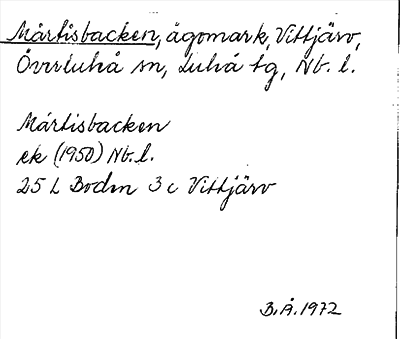 Mårtisbacken, ägomark, Vittjärv,
Överluleå sn, Luleå tg, Nb. l.
Mårtisbacken
ek (1950) Nb. l.
25 L Boden 3 c Vittjärv
B.Å. 1972